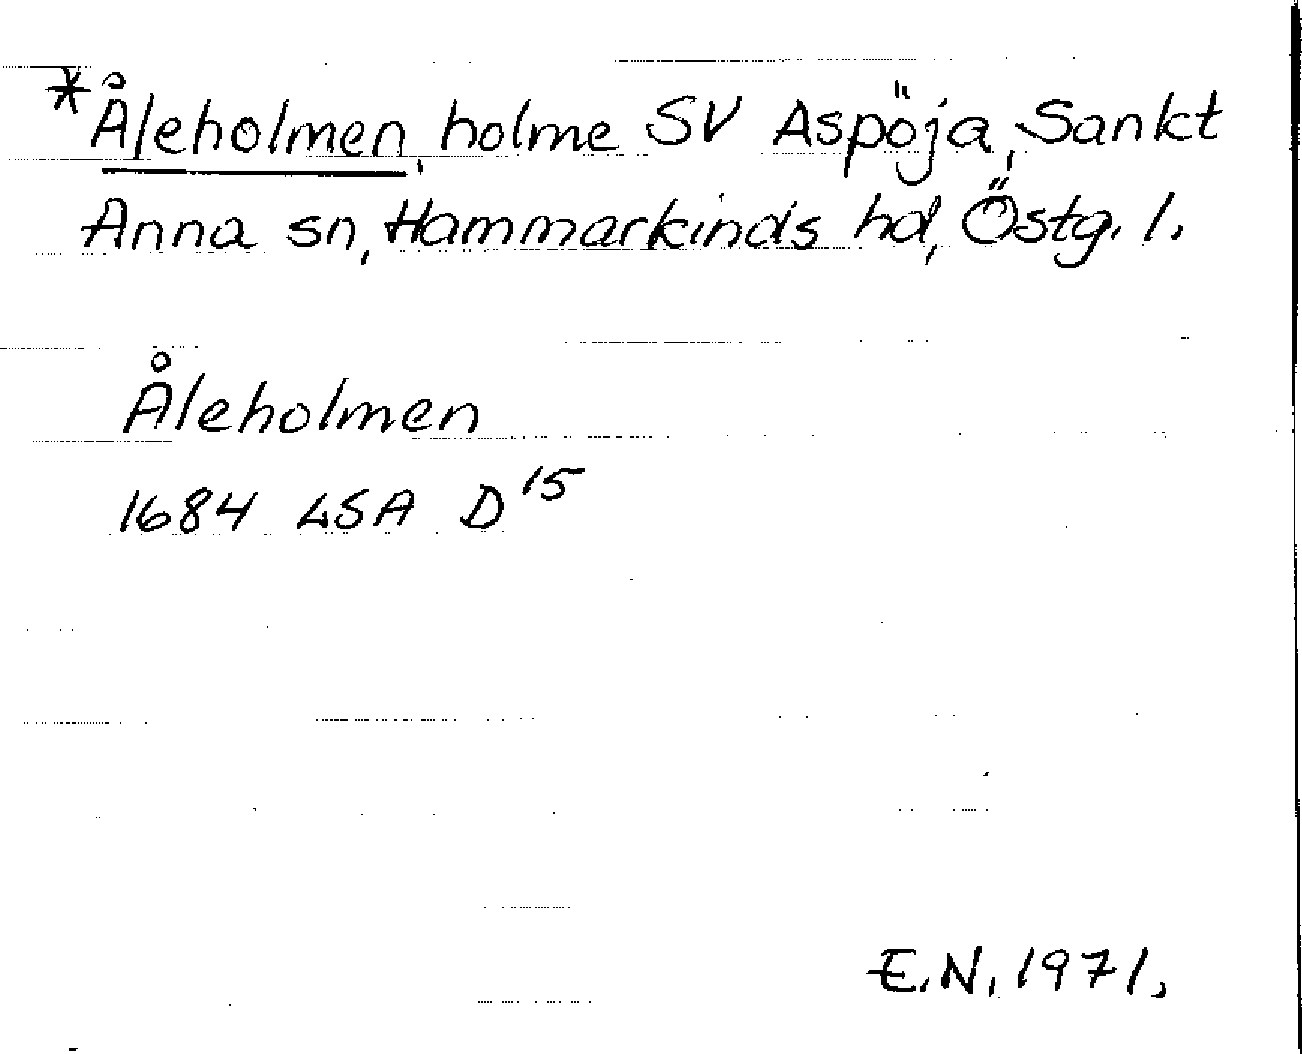 *Åleholmen, holme SV Aspöja, Sankt
Anna sn, Hammarkinds hd, Östg. l.
Åleholmen
1684 LSA D15
E.N. 1971.